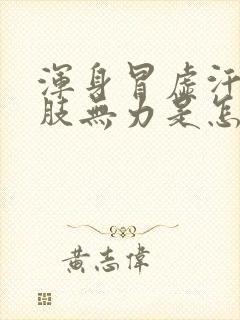 渾身冒虛汗
肢無力是怎
黃志偉